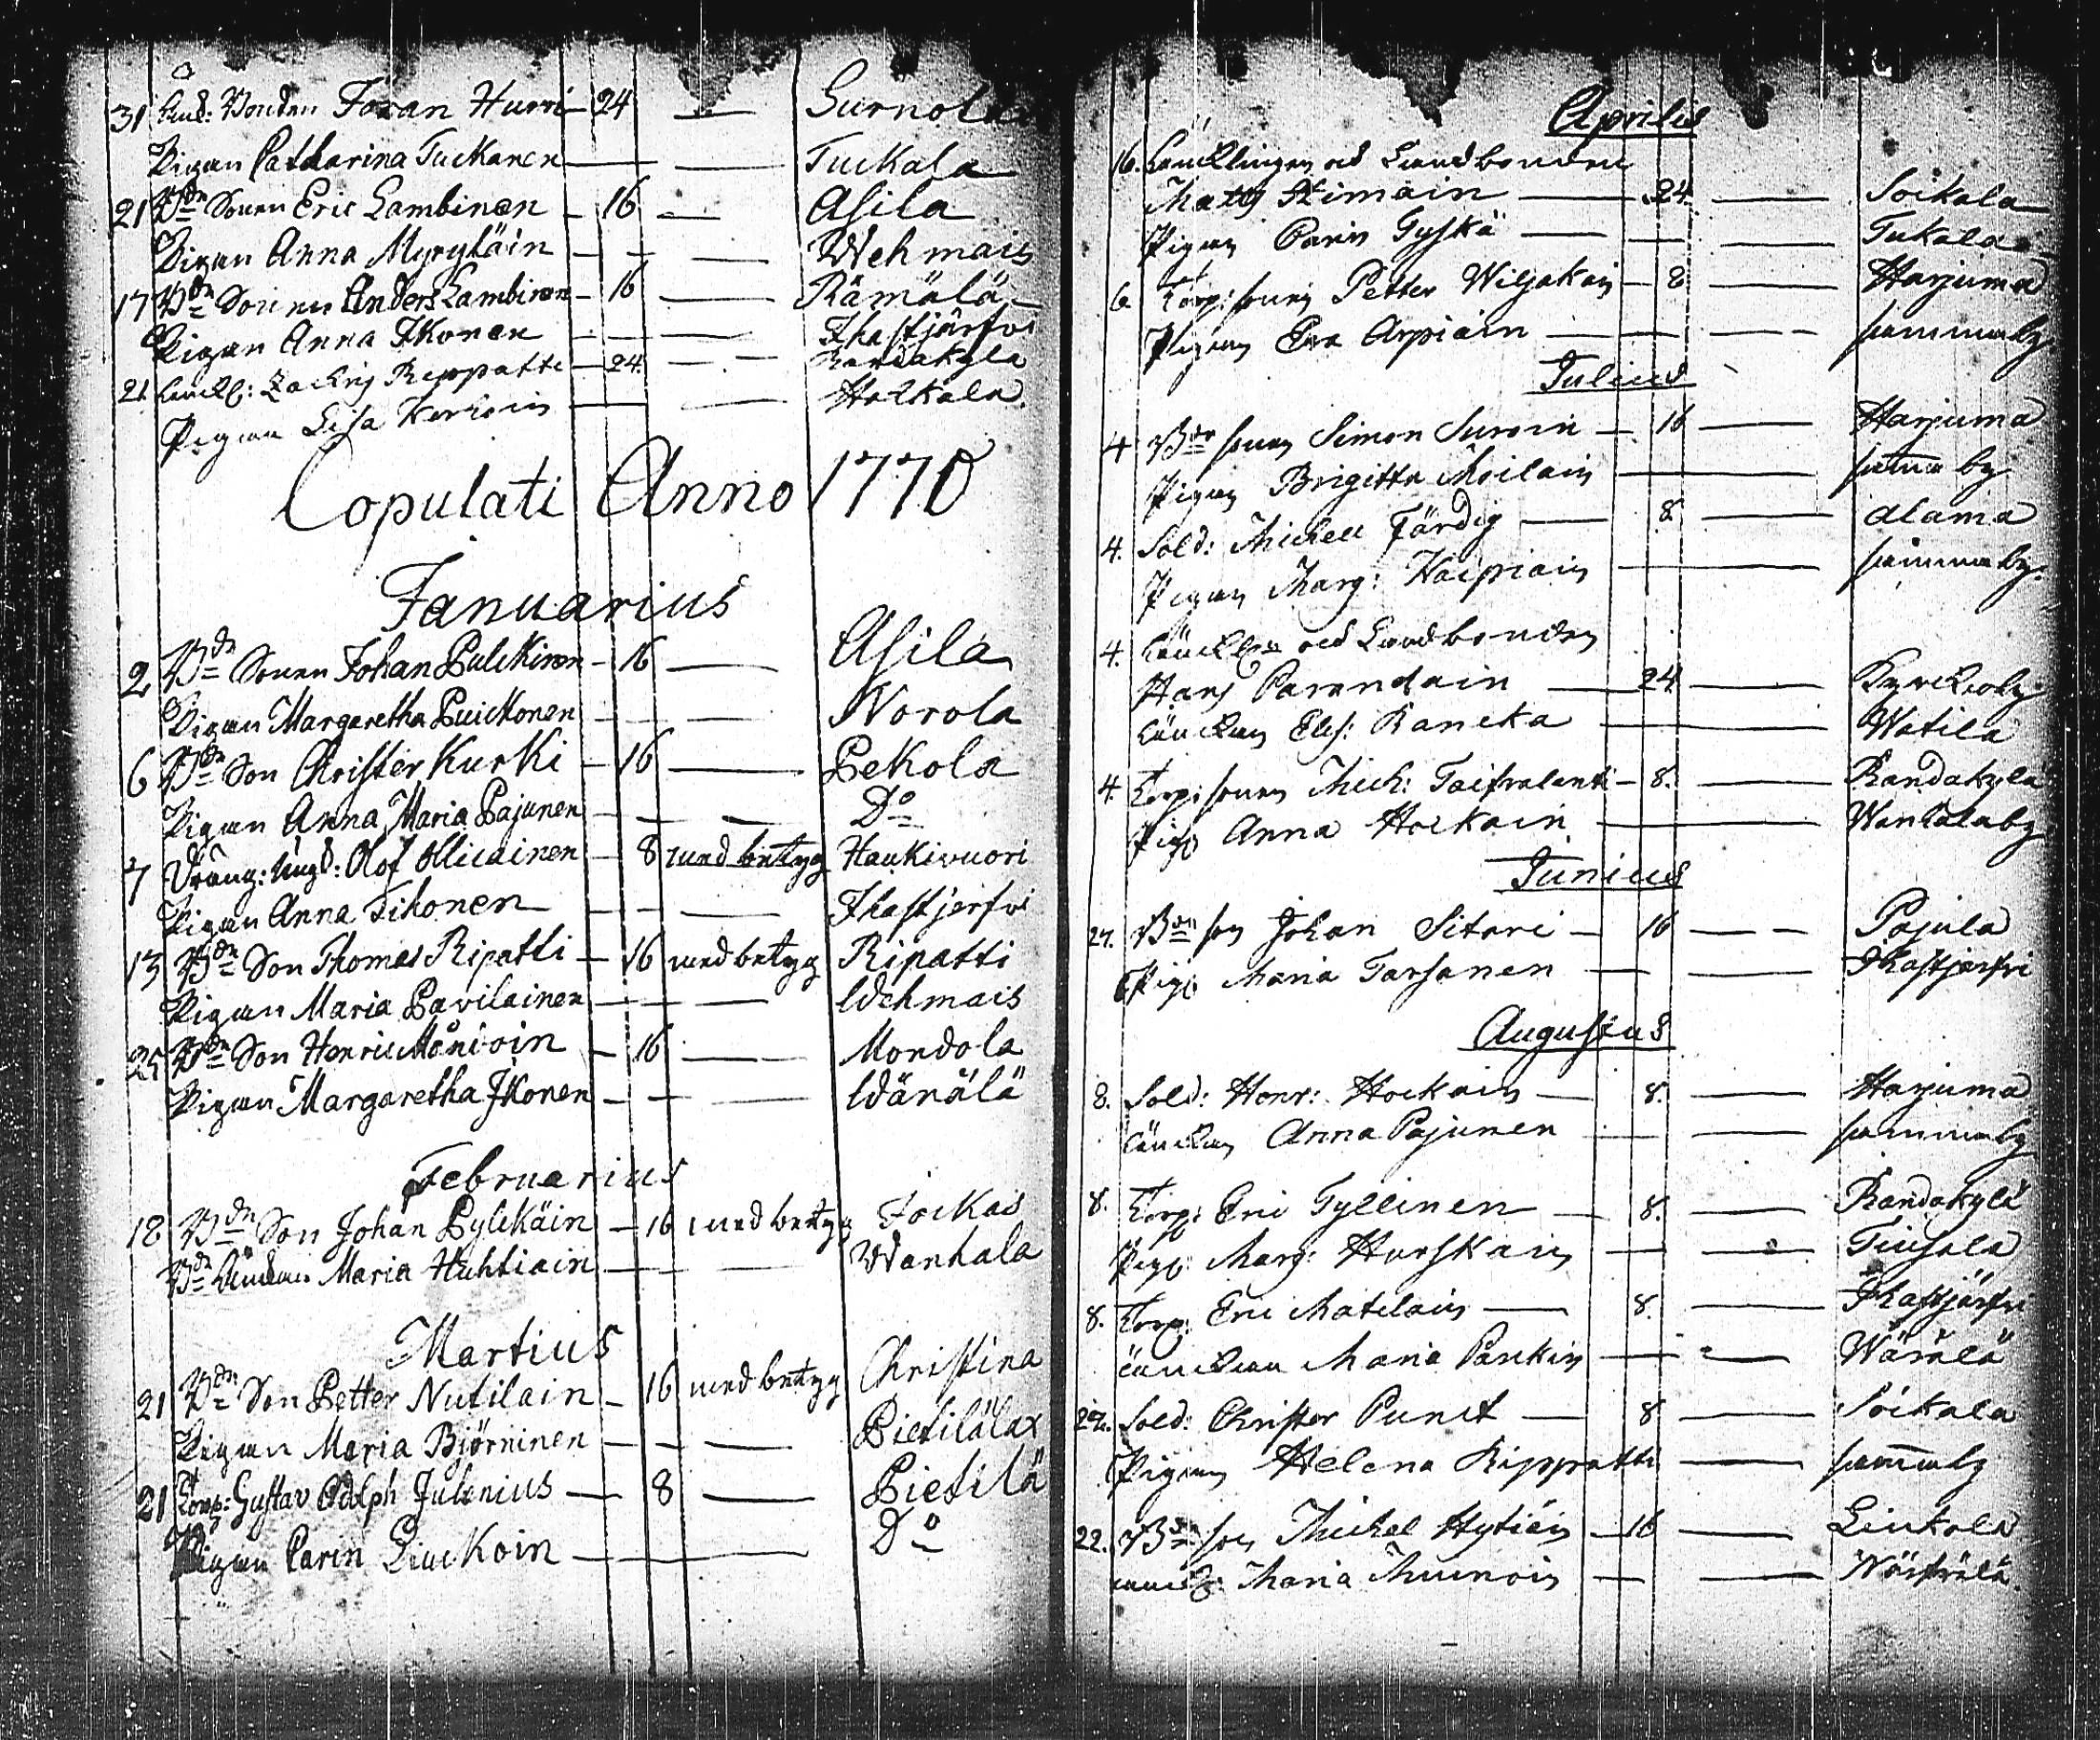 31 Land: Bonden Jöran Hurri – 24 — Surnola
Pigan Catharina Tuckanen — — Tuckala
21 Bdn Sonen Eric Lambinen – 16 — Asila
Pigan Anna Myrytäin – – — Wehmais
17 Bdn Sonen Anders Lambinen – 16 — Rämälä
Pigan Anna Ikonen – — — Ihastjärfvi
21 Enckl: Zachris Reppatti – 24 — Randakyla
Pigan Lisa Kerhoin — — Hatkala
Copulati Anno 1770
Januarius
2 Bdn Sonen Johan Pulckinen – 16 — Asila
Pigan Margaretha Puickonen – — — Norola
6 Bdn Son Christer Kurki – 16 — Pekola
Pigan Anna Maria Pajunen – — – Do
7 Dräng: Ungd: Olof Ollicainen – 8 med betyg Haukivuori
Pigan Anna Tihonen – – — Ihastjerfvi
13 Bdn Son Thomas Ripatti – 16 med betyg Ripatti
Pigan Maria Pavilainen – — — Wehmais
25 Bdn Son Henric Månioin – 16 — Mondola
Pigan Margaretha Ikonen – — — Wänälä
Februarius
18 Bdn Son Johan Pylckäin – 16 med betyg Jockas
Bdn Änckan Maria Huhtiain – — — Wanhala
Martius
21 Bdn Son Petter Nutilain – 16 med betyg Christina
Pigan Maria Björninen – – — Pietilälax
21 Torp: Gustav Adolph Julenius — 8 — Pietilä
Pigan Carin Liuckoin — — Do
Aprilis
16. Encklingen och Landbonden
Matts Stimain — 24 — Soikala
Pigan Carin Gyskä — — — Tukala
6. Torp: sonen Petter Wiljakain – 8 — Harjuma
Pigan Eva Arpiain — — – – samma by
Julius
4 Bdn sonen Simon Suroin – 16 — Harjuma
Pigan Brigitta Moilain — — samma by
4. Sold: Michell Färdig — 8 — Alama
Pigan Marg: Kaipiain — — samma by.
4. Enckl:n och Landbonden
Hans Parandain — 24 — Kyrckoby
Enckan Elis: Rancka — — Watila
4. Torp: sonen Mich: Taifvalanti – 8. — Randakyla
Pig: Anna Hockain — — Wanhalaby
Junius
24. Bdn son Johan Sitari – 16 — – Pajula
Pig: Maria Tarsanen – — — Ihastjärfvi
Augustus
8. Sold: Henr: Hockain — 8. — Harjuma
Enckan Anna Pajunen — — samma by
8. Torp: Eric Tyllinen — 8. — Randakylä
Pig: Marg: Hurskain — — Tiusala
8. Torp: Eric Matilain — 8. — Ihastjärfvi
Enckan Maria Parkin — – — Wänälä
22. Sold: Christer Punct — 8 — Soikala
Pigan Helena Rippatti — samma by
22. Bdn son Michel Hytiäin – 16 — Liukola
Enckl: Maria Muinoin — — Norfvola